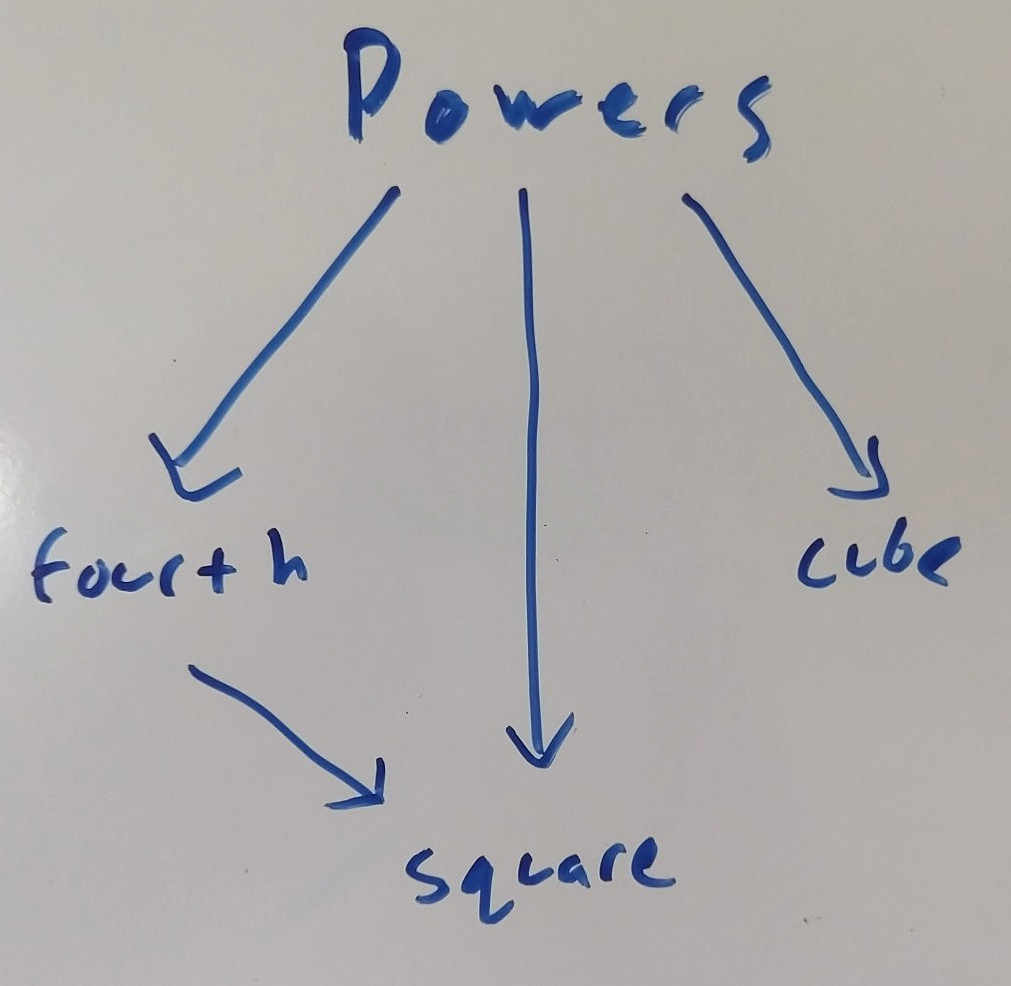 Powers
fourth
cube
square